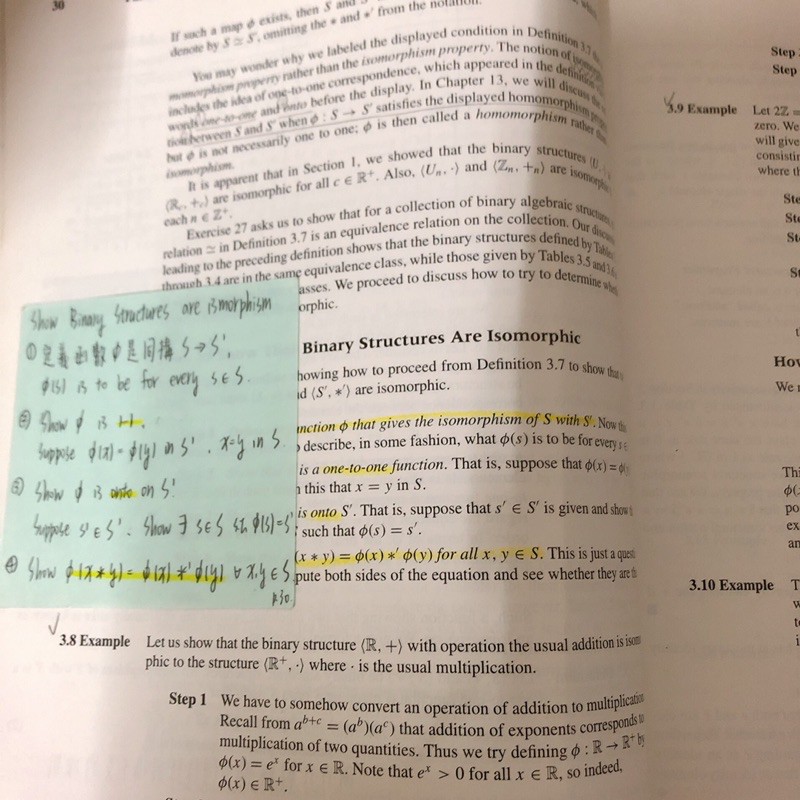 30
If such a map ϕ exists, then S and S'
denote by S ≃ S', omitting the * and *' from the notation.
You may wonder why we labeled the displayed condition in Definition 3.7 the
momorphism property rather than the isomorphism property. The notion of
includes the idea of one-to-one correspondence, which appeared in the definition
words one-to-one and onto before the display. In Chapter 13, we will discuss the
tion between S and S' when ϕ : S → S' satisfies the displayed homomorphism
but ϕ is not necessarily one to one; ϕ is then called a homomorphism rather
isomorphism.
It is apparent that in Section 1, we showed that the binary structures
⟨ℝc, +c⟩ are isomorphic for all c ∈ ℝ⁺. Also, ⟨Uₙ, ·⟩ and ⟨ℤₙ, +ₙ⟩ are isomorphic
each n ∈ ℤ⁺.
Exercise 27 asks us to show that for a collection of binary algebraic structures
relation ≃ in Definition 3.7 is an equivalence relation on the collection. Our
leading to the preceding definition shows that the binary structures defined by Tables
through 3.4 are in the same equivalence class, while those given by Tables 3.5 and 3.6
asses. We proceed to discuss how to try to determine
orphic.
Binary Structures Are Isomorphic
howing how to proceed from Definition 3.7 to show that
d ⟨S', *'⟩ are isomorphic.
nction ϕ that gives the isomorphism of S with S'. Now
describe, in some fashion, what ϕ(s) is to be for every
is a one-to-one function. That is, suppose that ϕ(x) =
this that x = y in S.
is onto S'. That is, suppose that s' ∈ S' is given and show
such that ϕ(s) = s'.
(x * y) = ϕ(x) *' ϕ(y) for all x, y ∈ S. This is just a
pute both sides of the equation and see whether they are
Show Binary Structures are ismorphism
① 定義函數 ϕ 是同構 S → S',
ϕ(s) is to be for every s ∈ S.
② Show ϕ is 1-1.
Suppose ϕ(x) = ϕ(y) in S', x=y in S.
③ Show ϕ is onto on S'
Suppose s' ∈ S'. Show ∃ s ∈ S st. ϕ(s) = s'
④ Show ϕ(x*y) = ϕ(x) *' ϕ(y) ∀ x,y ∈ S
p.30.
3.8 Example Let us show that the binary structure ⟨ℝ, +⟩ with operation the usual addition is
phic to the structure ⟨ℝ⁺, ·⟩ where · is the usual multiplication.
Step 1 We have to somehow convert an operation of addition to multiplication.
Recall from a^{b+c} = (a^b)(a^c) that addition of exponents corresponds to
multiplication of two quantities. Thus we try defining ϕ : ℝ → ℝ⁺ by
ϕ(x) = e^x for x ∈ ℝ. Note that e^x > 0 for all x ∈ ℝ, so indeed,
ϕ(x) ∈ ℝ⁺.
Step
Step
3.9 Example Let 2ℤ =
zero. We
will give
consistin
where th
Ste
Ste
St
S
How
We
Thi
ϕ(
po
ex
an
3.10 Example T